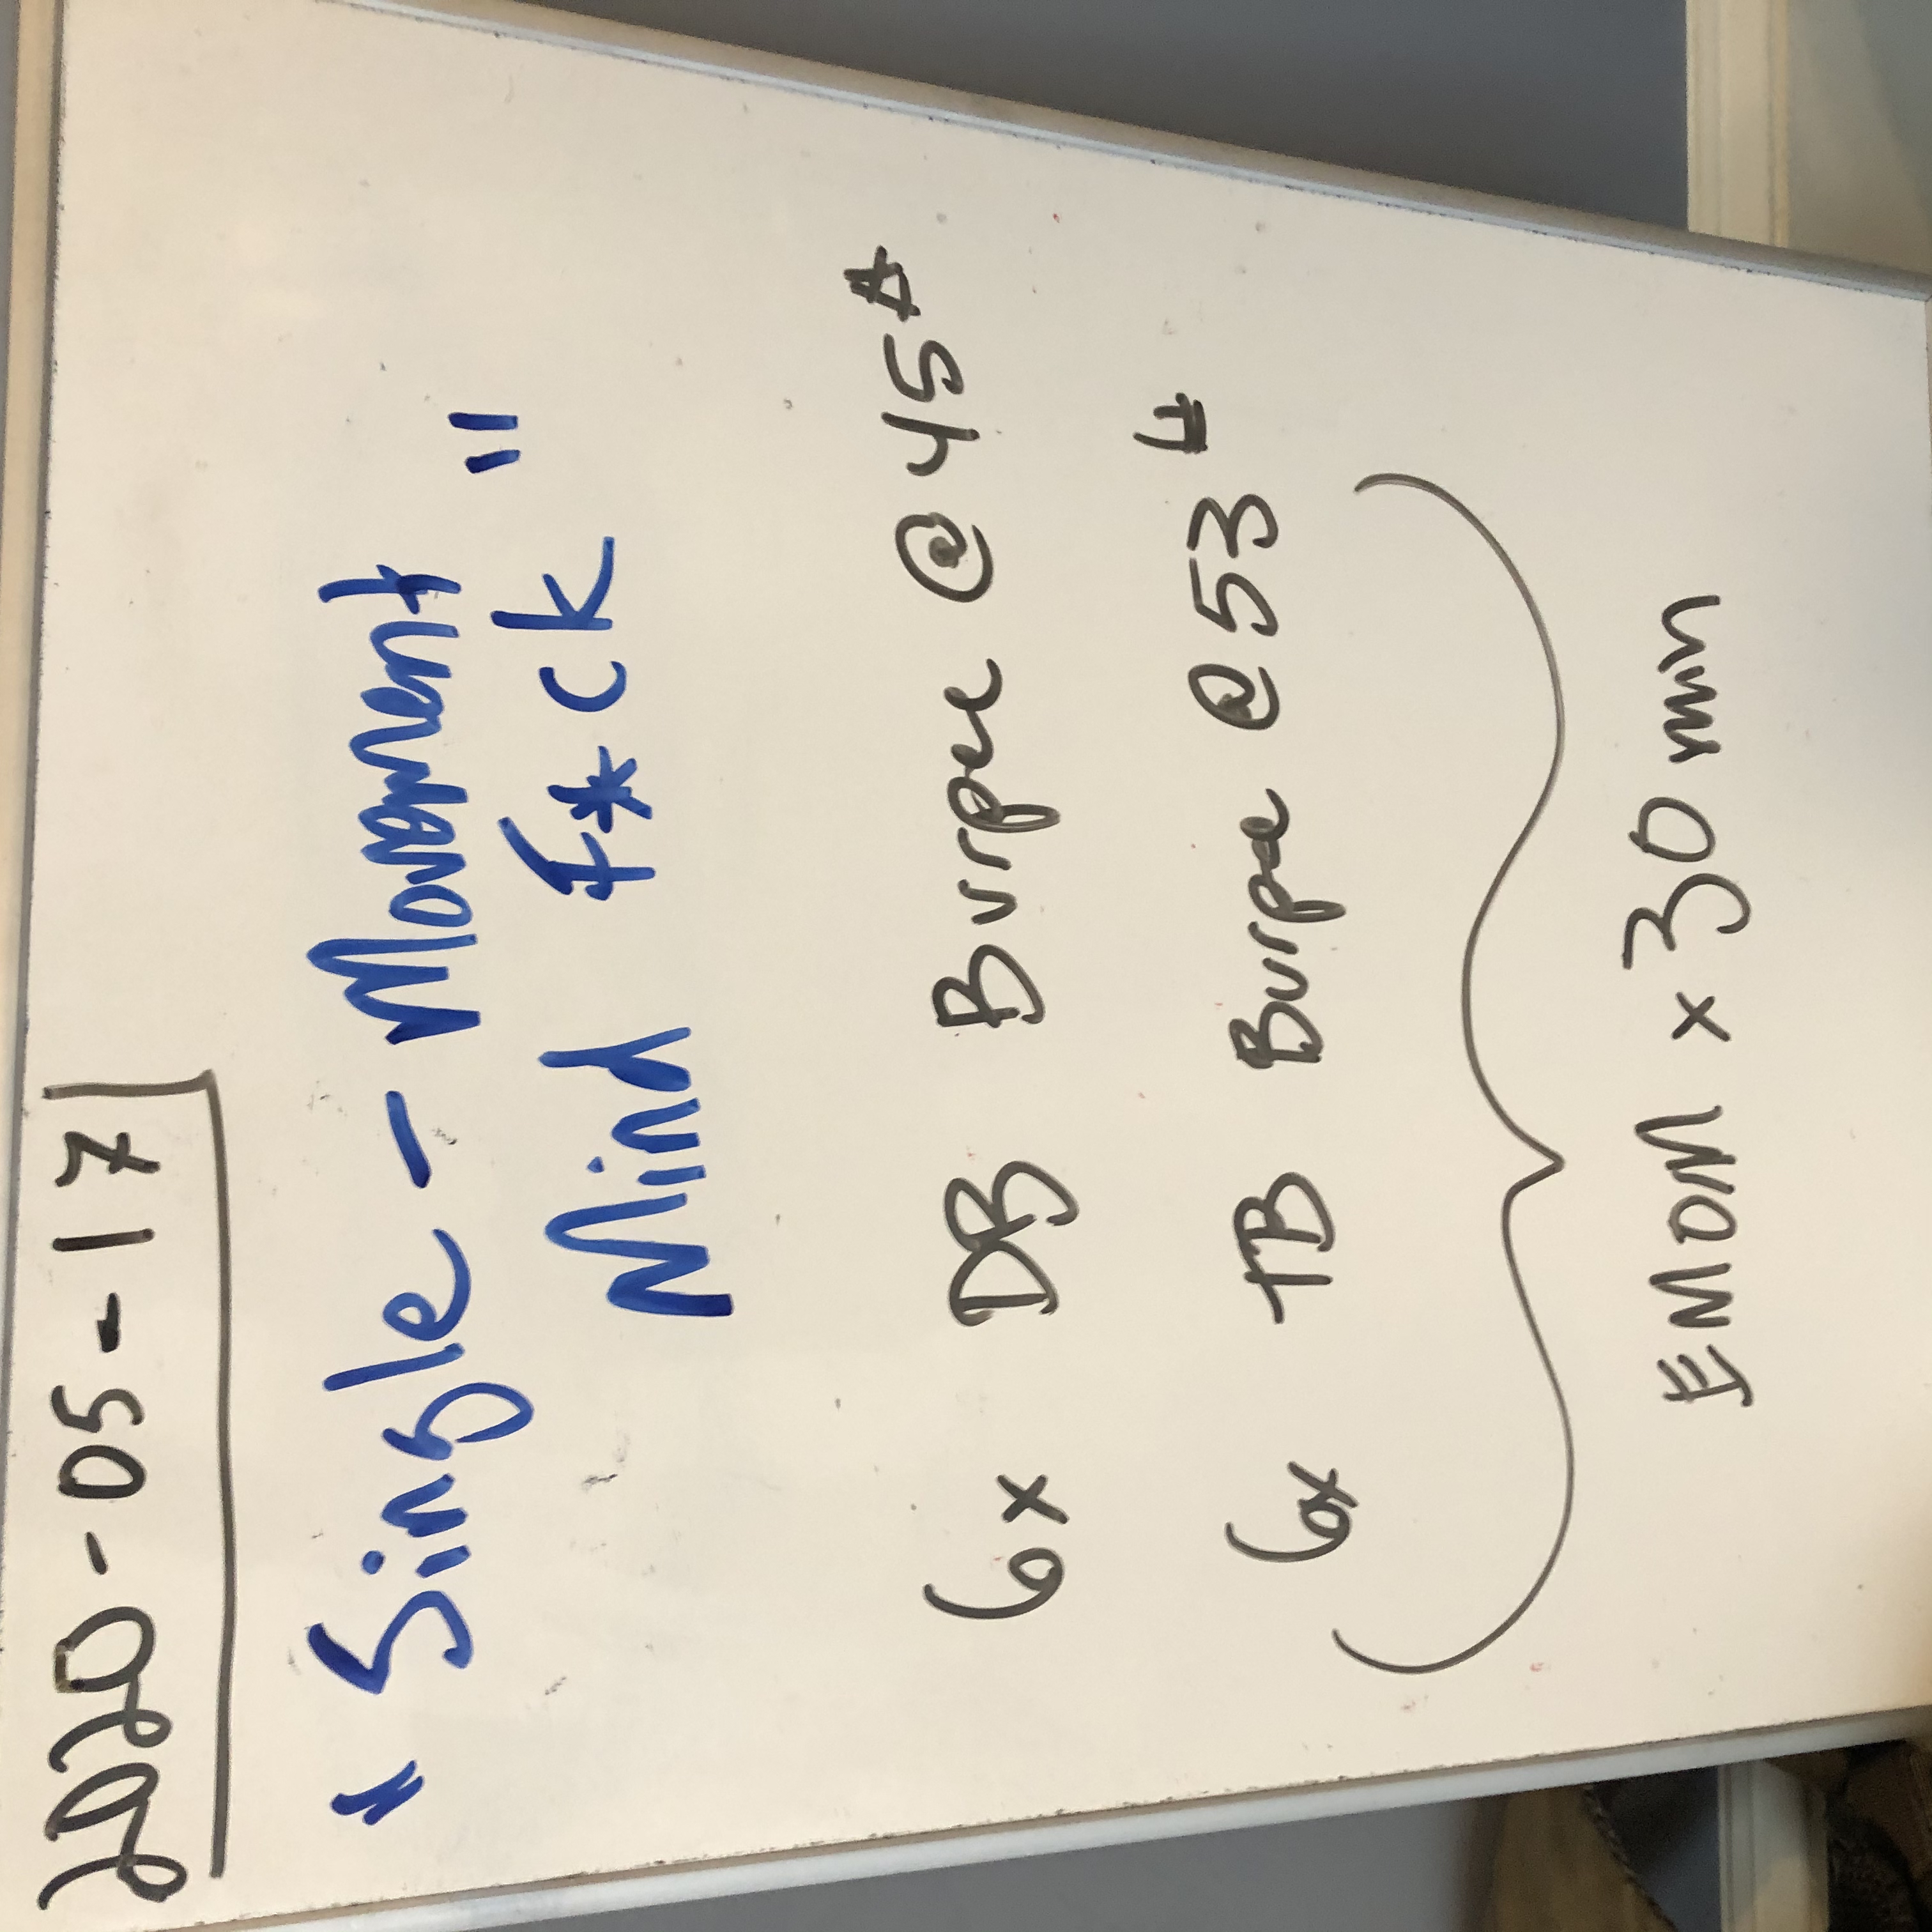 2020-05-17
"Single-Movement
Mind F*ck"
6x DB Burpee @ 45#
6x TB Burpee @ 53#
EMOM x 30 min